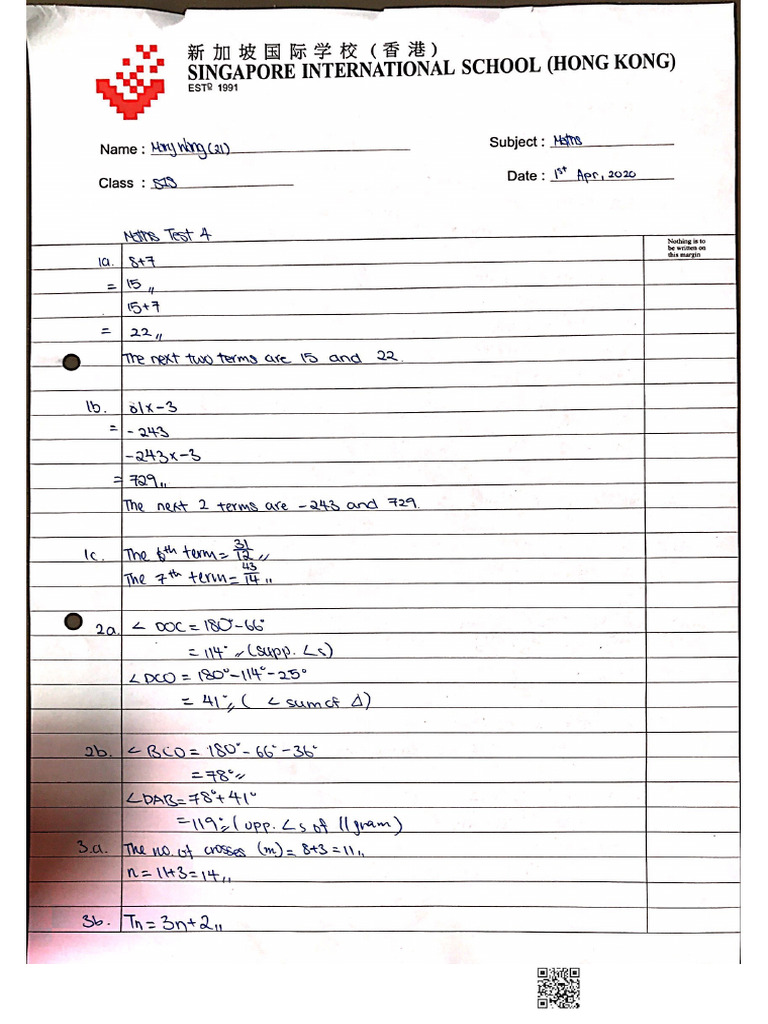 新加坡国际学校（香港）
SINGAPORE INTERNATIONAL SCHOOL (HONG KONG)
ESTº 1991
Name : Wong (21)
Subject : Maths
Class : S1S
Date : 1st Apr, 2020
Maths Test 4
Nothing is to
be written on
this margin
1a. 8+7
= 15 ,,
15+7
= 22 ,,
The next two terms are 15 and 22.
1b. 81x-3
= -243
-243x-3
= 729 ,,
The next 2 terms are -243 and 729.
1c. The 6th term = 31/12 ,,
The 7th term = 43/14 ,,
2a. ∠ DOC = 180°-66°
= 114° ,, (supp. ∠s)
∠DCO = 180°-114°-25°
= 41° ,, ( ∠ sum of Δ)
2b. ∠BCO = 180°-66°-36°
= 78° ,,
∠DAB = 78°+41°
= 119° ,, (opp. ∠s of //gram)
3.a. The no. of crosses (m) = 8+3 = 11 ,,
n = 11+3 = 14 ,,
3b. Tn = 3n+2 ,,